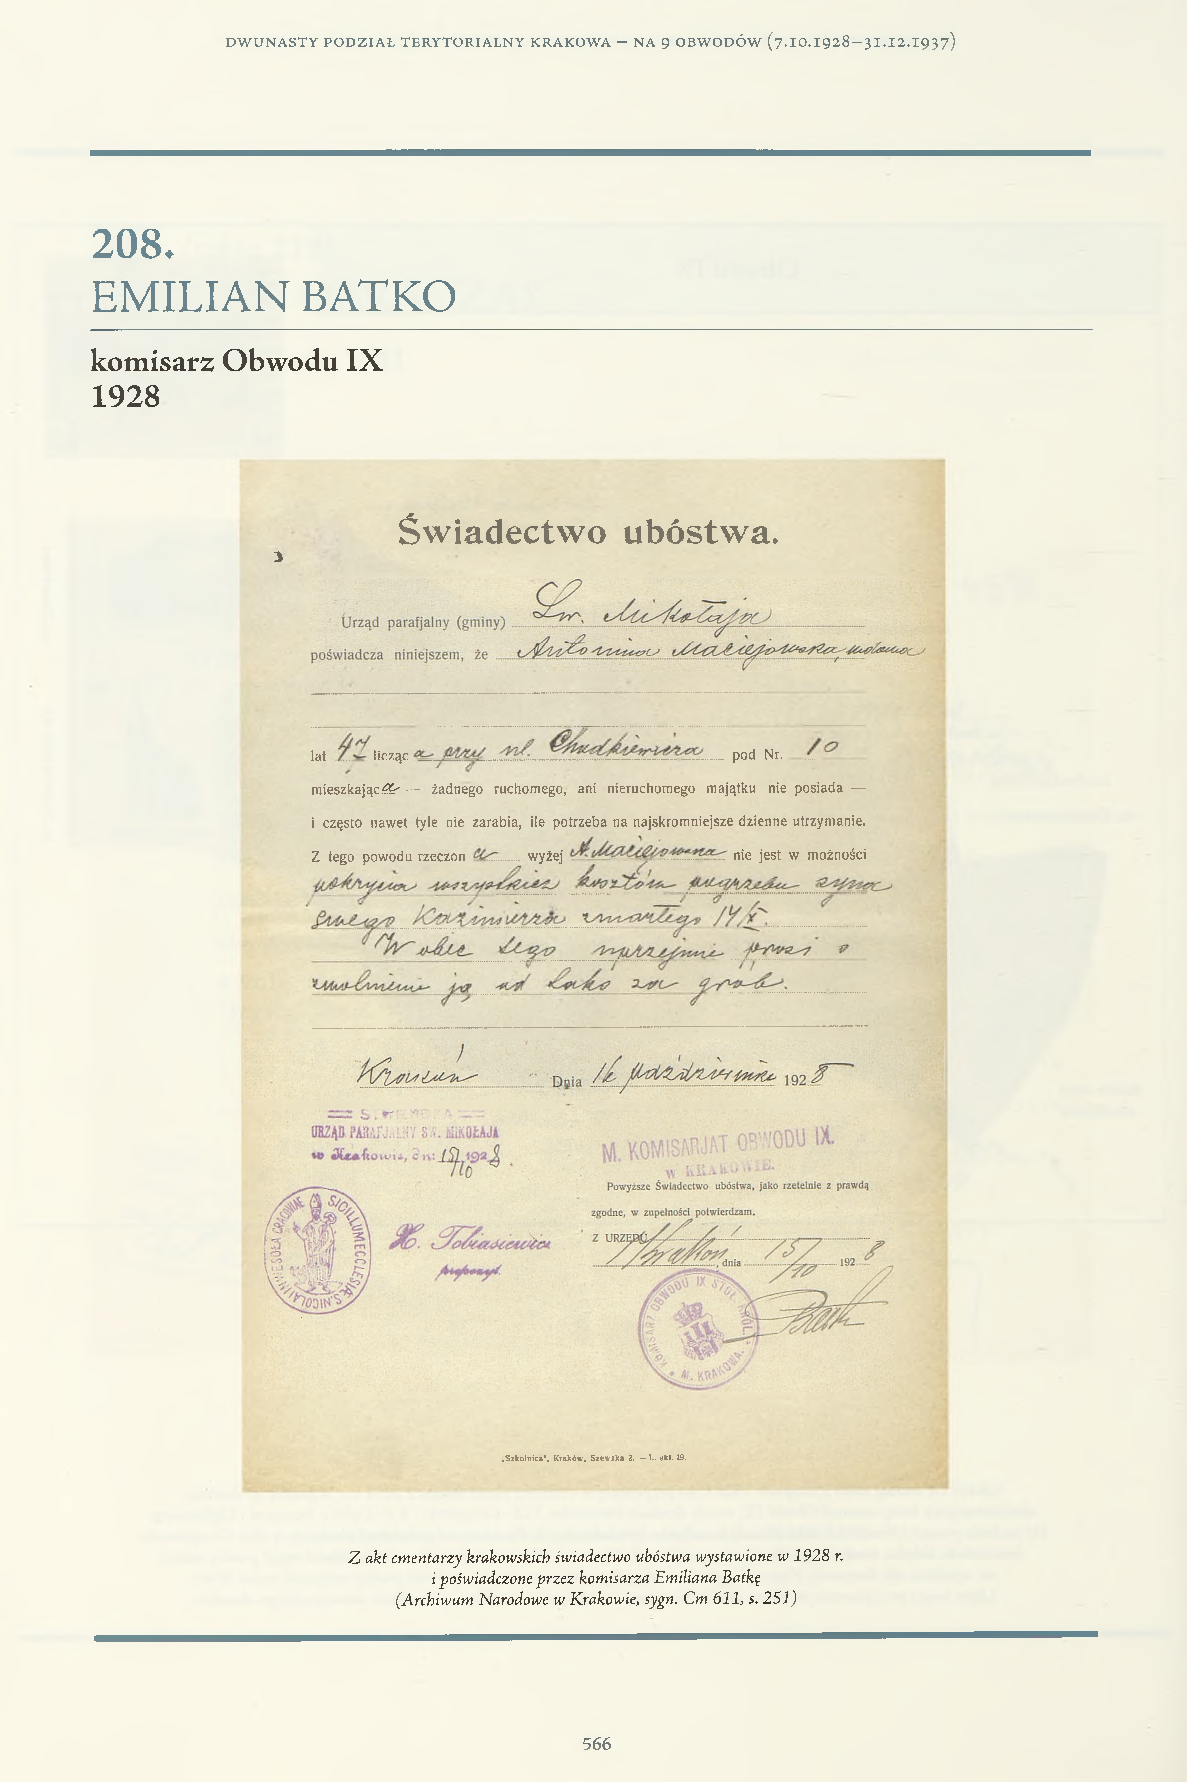 DWUNASTY PODZIAŁ TERYTORIALNY KRAKOWA — NA 9 OBWODÓW (7.10.1928–31.12.1937)
208.
EMILIAN BATKO
komisarz Obwodu IX
1928
Świadectwo ubóstwa.
Urząd parafjalny (gminy) Św. Mikołaja
poświadcza niniejszem, że Antonina Maciejowska, wdowa
lat 47 licząca przy ul. Chodkiewicza pod Nr. 10
mieszkająca — żadnego ruchomego, ani nieruchomego majątku nie posiada —
i często nawet tyle nie zarabia, ile potrzeba na najskromniejsze dzienne utrzymanie.
Z tego powodu rzeczona wyżej A. Maciejowska nie jest w możności
pokrycia wszystkich kosztów pogrzebu syna
swego Kazimierza zmarłego 14/X.
Wobec tego uprzejmie prosi o
zwolnienie ją od taks za grób.
Kraków Dnia 16 października 1928
URZĄD PARAFJALNY ŚW. MIKOŁAJA
w Krakowie, dn: 15/10 1928.
M. KOMISARJAT OBWODU IX.
W KRAKOWIE.
Powyższe Świadectwo ubóstwa, jako rzetelnie z prawdą
zgodne, w zupełności potwierdzam.
Z URZĘDU
Kraków, dnia 15/10 1928
SIGILLUM ECCLESIÆ S. NICOLAI WESOŁA CRACOVIAE
H. Tobiasiewicz
proboszcz.
KOMISARZ OBWODU IX STOŁ. KRÓL. M. KRAKOWA.
Batko
„Szkolnica“, Kraków, Szewska 2. — L. skl. 19.
Z akt cmentarzy krakowskich świadectwo ubóstwa wystawione w 1928 r.
i poświadczone przez komisarza Emiliana Batkę
(Archiwum Narodowe w Krakowie, sygn. Cm 611, s. 251)
566